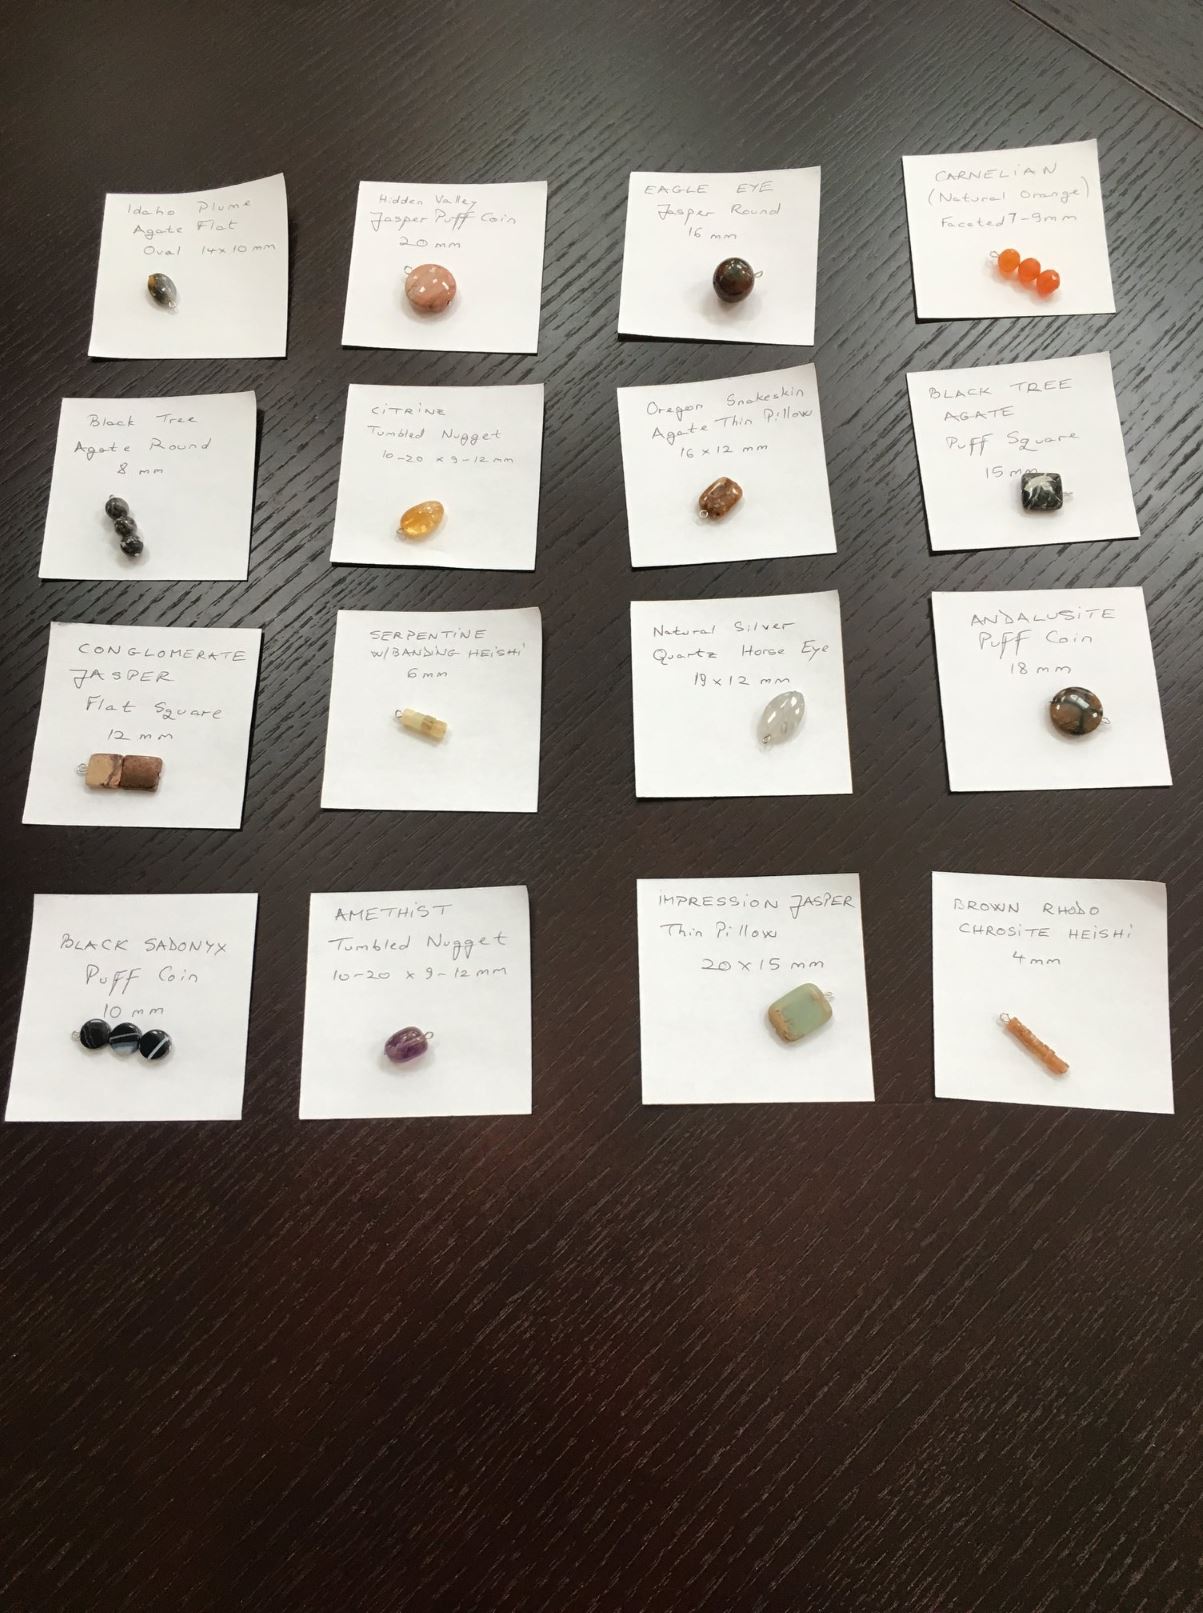 Idaho Plume
Agate Flat
Oval 14x10 mm
Hidden Valley
Jasper Puff Coin
20 mm
EAGLE EYE
Jasper Round
16 mm
CARNELIAN
(Natural Orange)
Faceted 7-9mm
Black Tree
Agate Round
8 mm
CITRINE
Tumbled Nugget
10-20 x 9-12 mm
Oregon Snakeskin
Agate Thin Pillow
16 x 12 mm
BLACK TREE
AGATE
Puff Square
15 mm
CONGLOMERATE
JASPER
Flat Square
12 mm
SERPENTINE
W/BANDING HEISHI
6 mm
Natural Silver
Quartz Horse Eye
19 x 12 mm
ANDALUSITE
Puff Coin
18 mm
BLACK SADONYX
Puff Coin
10 mm
AMETHIST
Tumbled Nugget
10-20 x 9-12 mm
IMPRESSION JASPER
Thin Pillow
20 x 15 mm
BROWN RHODO
CHROSITE HEISHI
4 mm